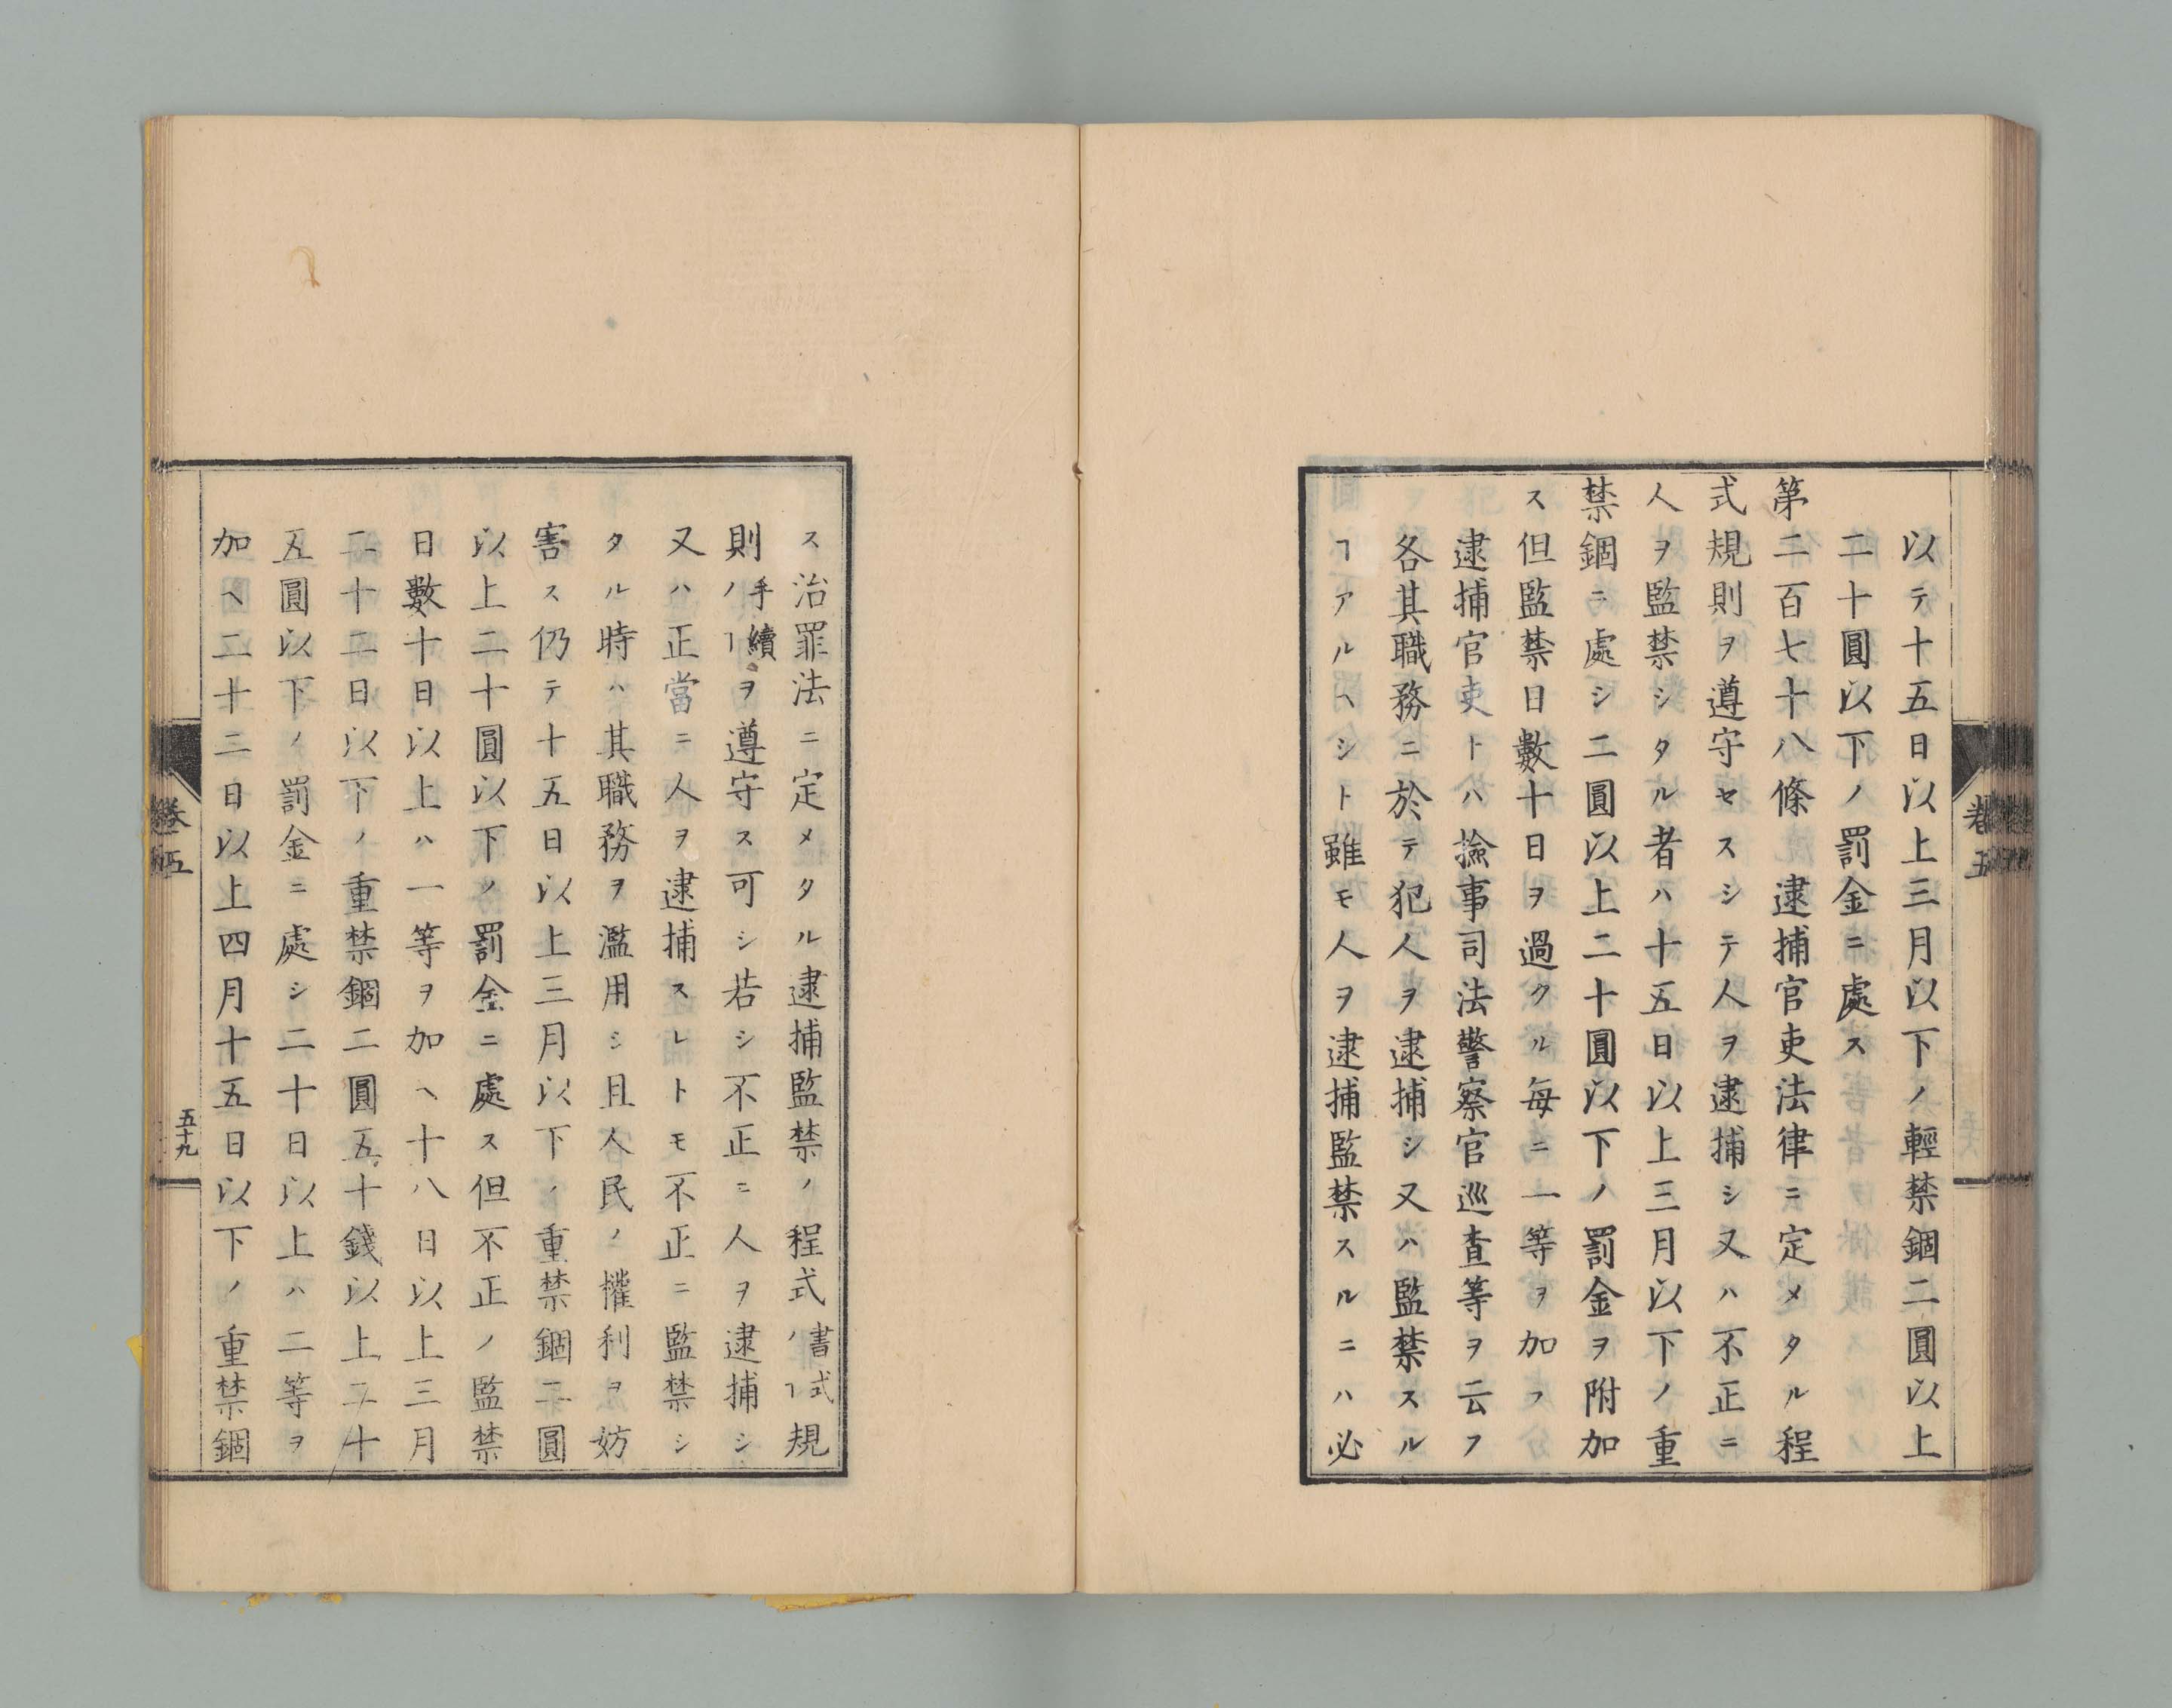 以テ十五日以上三月以下ノ輕禁錮二圓以上
二十圓以下ノ罰金ニ處ス
第二百七十八條 逮捕官吏法律ニ定メタル程
式規則ヲ遵守セスシテ人ヲ逮捕シ又ハ不正ニ
人ヲ監禁シタル者ハ十五日以上三月以下ノ重
禁錮ニ處シ二圓以上二十圓以下ノ罰金ヲ附加
ス但監禁日數十日ヲ過クル每ニ一等ヲ加フ
逮捕官吏トハ撿事司法警察官巡査等ヲ云フ
各其職務ニ於テ犯人ヲ逮捕シ又ハ監禁スル
ヿアルヘシト雖モ人ヲ逮捕監禁スルニハ必
卷五
ス治罪法ニ定メタル逮捕監禁ノ程式書式ノヿ規
則手續ノヿヲ遵守ス可シ若シ不正ニ人ヲ逮捕シ
又ハ正當ニ人ヲ逮捕スレトモ不正ニ監禁シ
タル時ハ其職務ヲ濫用シ且人民ノ權利ヲ妨
害ス仍テ十五日以上三月以下ノ重禁錮二圓
以上二十圓以下ノ罰金ニ處ス但不正ノ監禁
日數十日以上ハ一等ヲ加ヘ十八日以上三月
二十二日以下ノ重禁錮二圓五十錢以上二十
五圓以下ノ罰金ニ處シ二十日以上ハ二等ヲ
加ヘ二十二日以上四月十五日以下ノ重禁錮
卷五
五十九